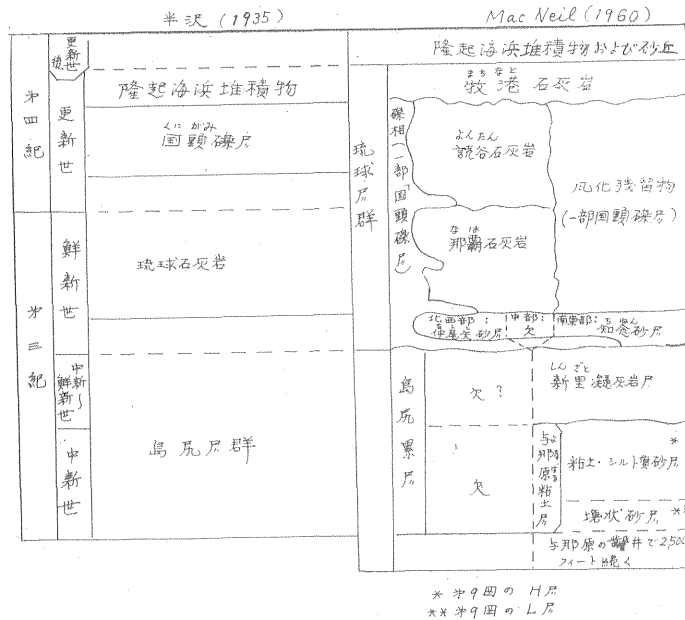 半沢 (1935)
Mac Neil (1960)
後更新世
第四紀
更新世
隆起海浜堆積物
くにがみ
国頭礫层
第三紀
鮮新世
琉球石灰岩
中新〜鮮新世
中新世
島尻层群
隆起海浜堆積物および砂丘
琉球层群
まちなと
牧港石灰岩
礫相(一部「国頭礫层)
よんたん
読谷石灰岩
なは
那覇石灰岩
風化残留物
(一部国頭礫层)
北西部:
仲尾次砂层
中部:
欠
南東部:
ちねん
知念砂层
島尻累层
欠?
しんざと
新里凝灰岩层
欠
与那原粘土层
粘土・シルト質砂层 *
塊状砂层 **
与那原の井で2,500
フィート続く
* 第9図のH层
** 第9図のL层